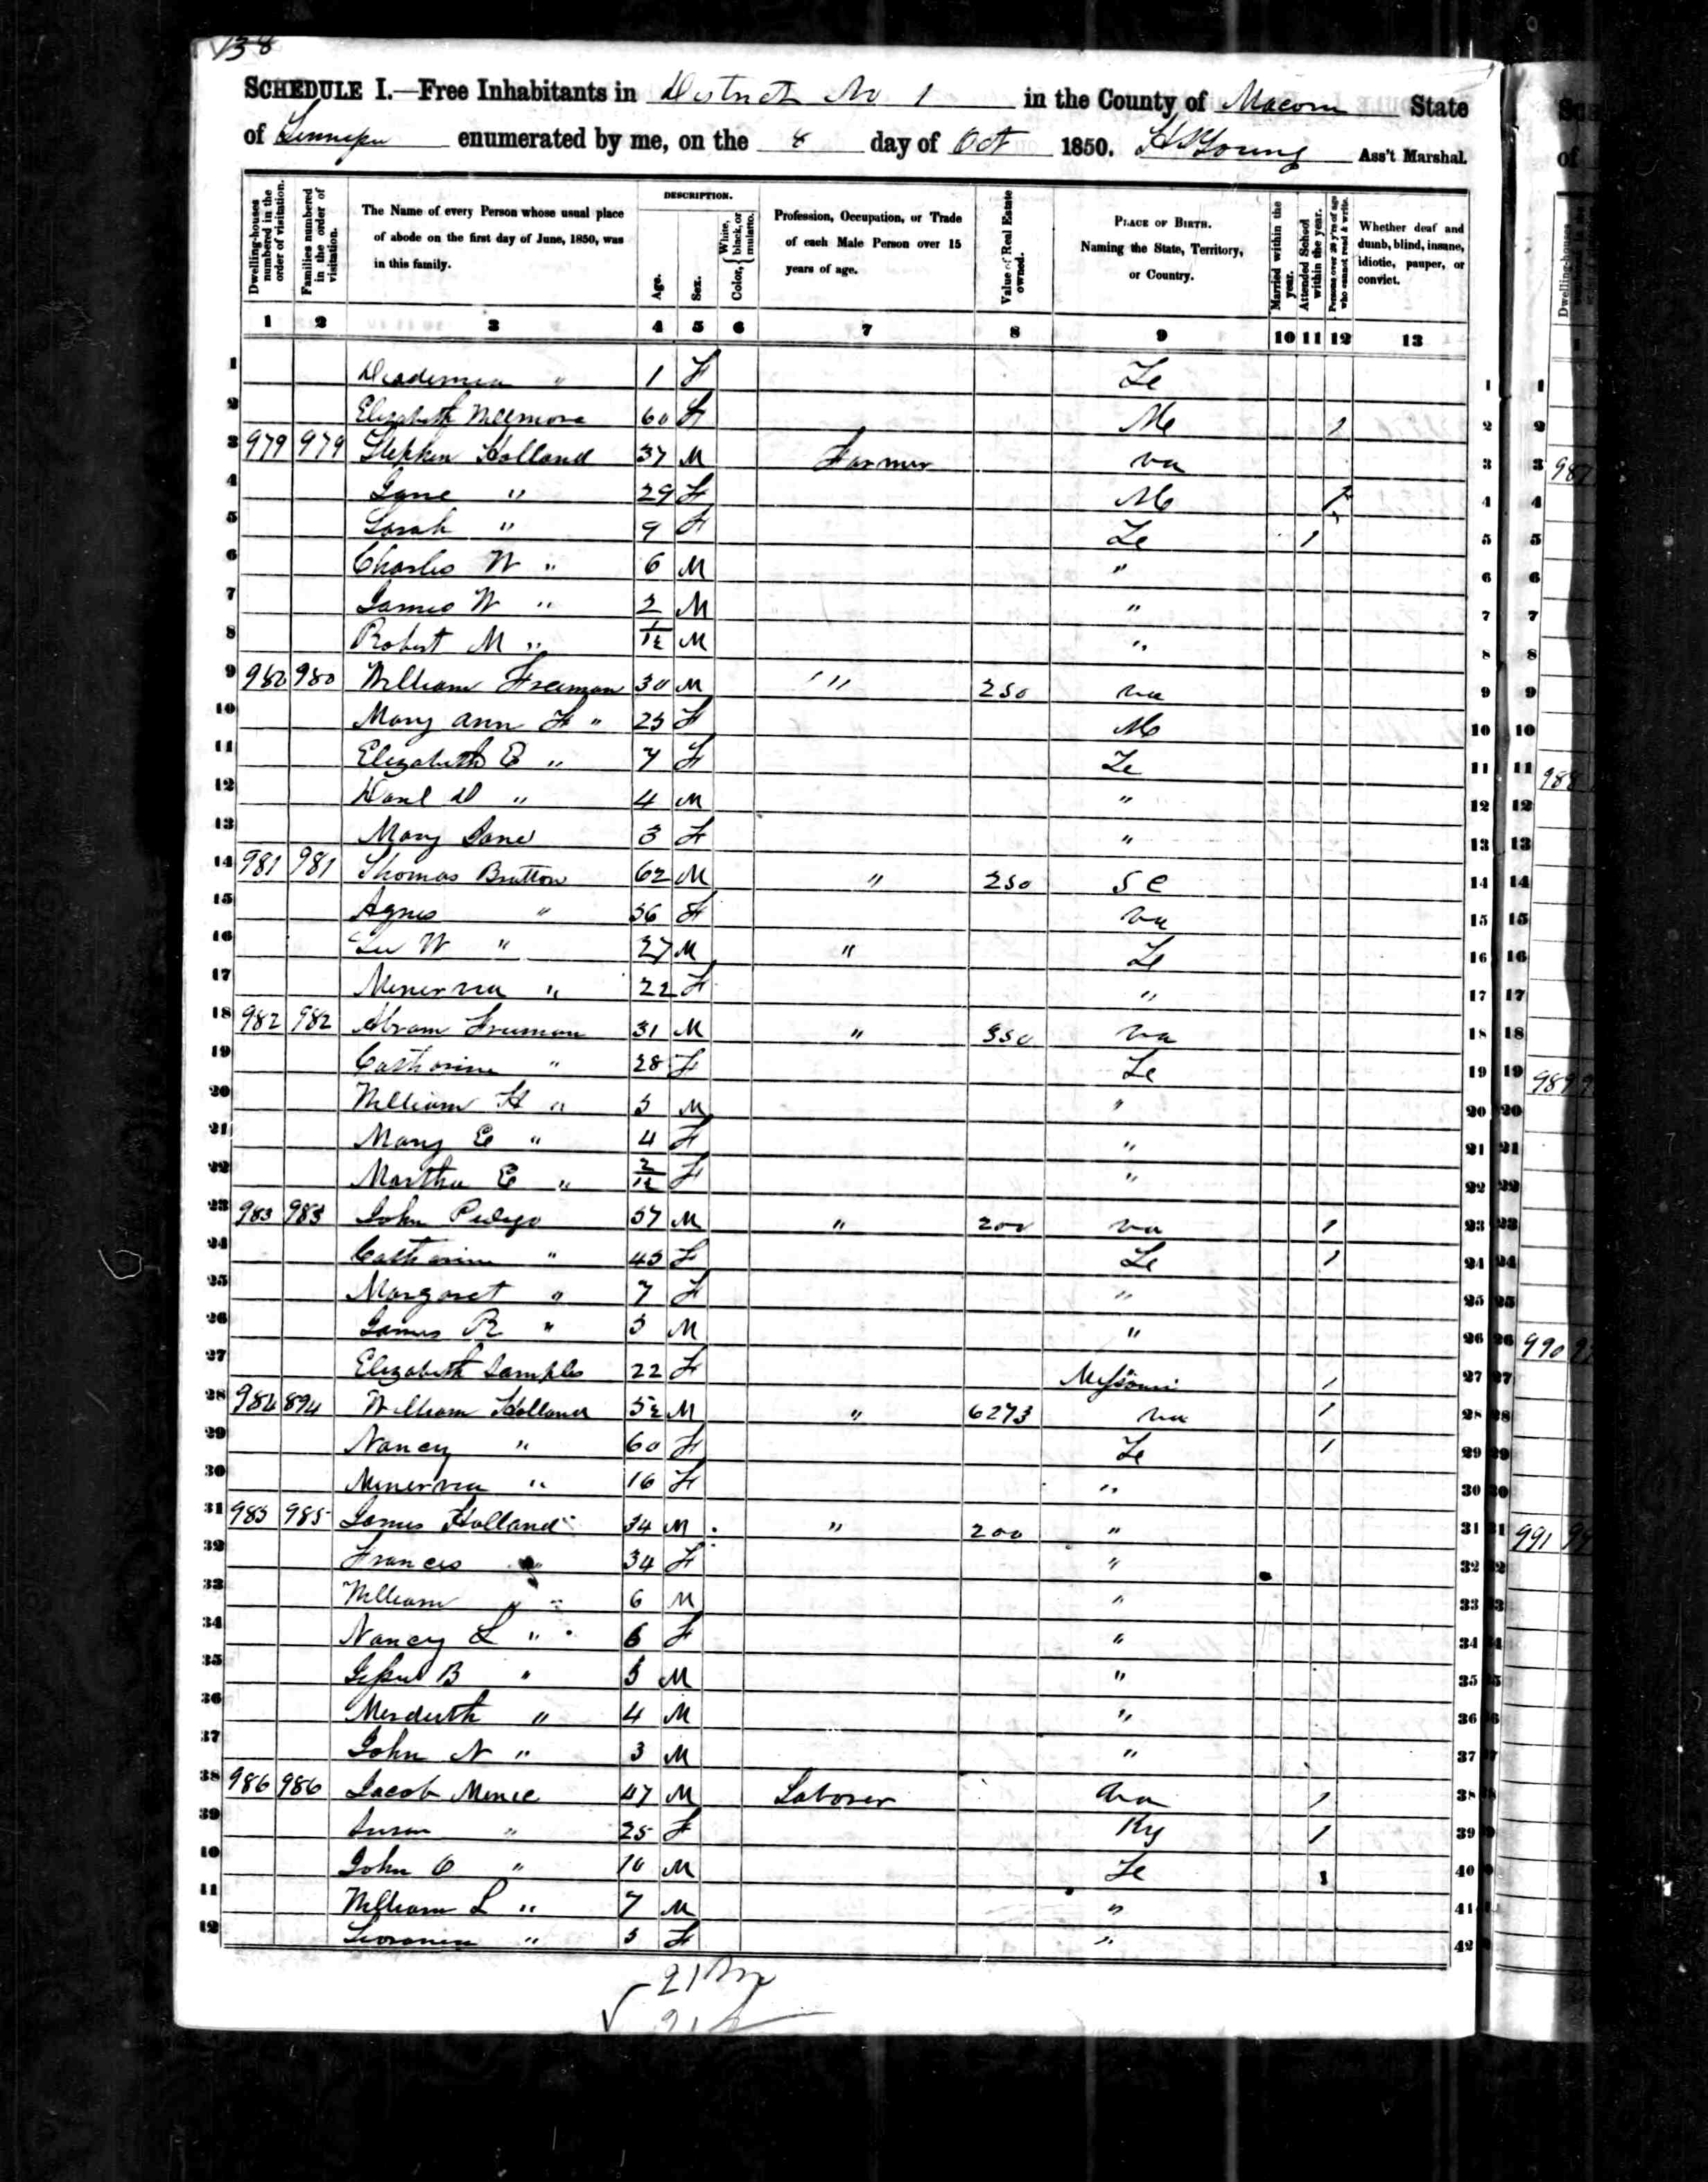 138
SCHEDULE I.—Free Inhabitants in District No 1 in the County of Macon State
of Tennessee enumerated by me, on the 8 day of Oct 1850. Young Ass't Marshal.
Dwelling-houses numbered in the order of visitation. Families numbered in the order of visitation. The Name of every Person whose usual place of abode on the first day of June, 1850, was in this family. DESCRIPTION. Age. Sex. Color, { White, black, or mulatto. Profession, Occupation, or Trade of each Male Person over 15 years of age. Value of Real Estate owned. PLACE OF BIRTH. Naming the State, Territory, or Country. Married within the year. Attended School within the year. Persons over 20 y'rs of age who cannot read & write. Whether deaf and dumb, blind, insane, idiotic, pauper, or convict.
1 2 3 4 5 6 7 8 9 10 11 12 13
1 " 1 F Te 1
2 Elizabeth 60 F 1 2
3 979 979 Stephen Holland 37 M Farmer va 3
4 Jane " 29 F 4
5 Sarah " 9 F Te 1 5
6 Charles W " 6 M " 6
7 James W " 2 M " 7
8 Robert M " 1/12 M " 8
9 980 980 William Freeman 30 M " 250 va 9
10 Mary Ann F " 25 F 10
11 Elizabeth E " 7 F Te 11
12 " 4 M " 12
13 Mary Jane 3 F " 13
14 981 981 Thomas Bratton 62 M " 250 S C 14
15 Agnes " 56 F va 15
16 Lee W " 27 M " Te 16
17 Minerva " 22 F " 17
18 982 982 Abram Freeman 31 M " 350 va 18
19 Catharine " 28 F Te 19
20 William H " 5 M " 20
21 Mary E " 4 F " 21
22 Martha E " 2/12 F " 22
23 983 983 John Pedigo 57 M " 200 va 1 23
24 Catharine " 45 F Te 1 24
25 Margaret " 7 F " 25
26 James R " 5 M " 26
27 Elizabeth Samples 22 F Missouri 1 27
28 984 894 William Holland 52 M " 6273 va 1 28
29 Nancy " 60 F Te 1 29
30 Minerva " 16 F " 30
31 985 985 James Holland 34 M " 200 " 31
32 Frances " 34 F " 32
33 William " 6 M " 33
34 Nancy L " 6 F " 34
35 B " 5 M " 35
36 Merideth " 4 M " 36
37 John N " 3 M " 37
38 986 986 Jacob 47 M Laborer va 1 38
39 Susan " 25 F Ky 1 39
40 John O " 10 M Te 1 40
41 William L " 7 M " 41
42 " 5 F " 42
21 m